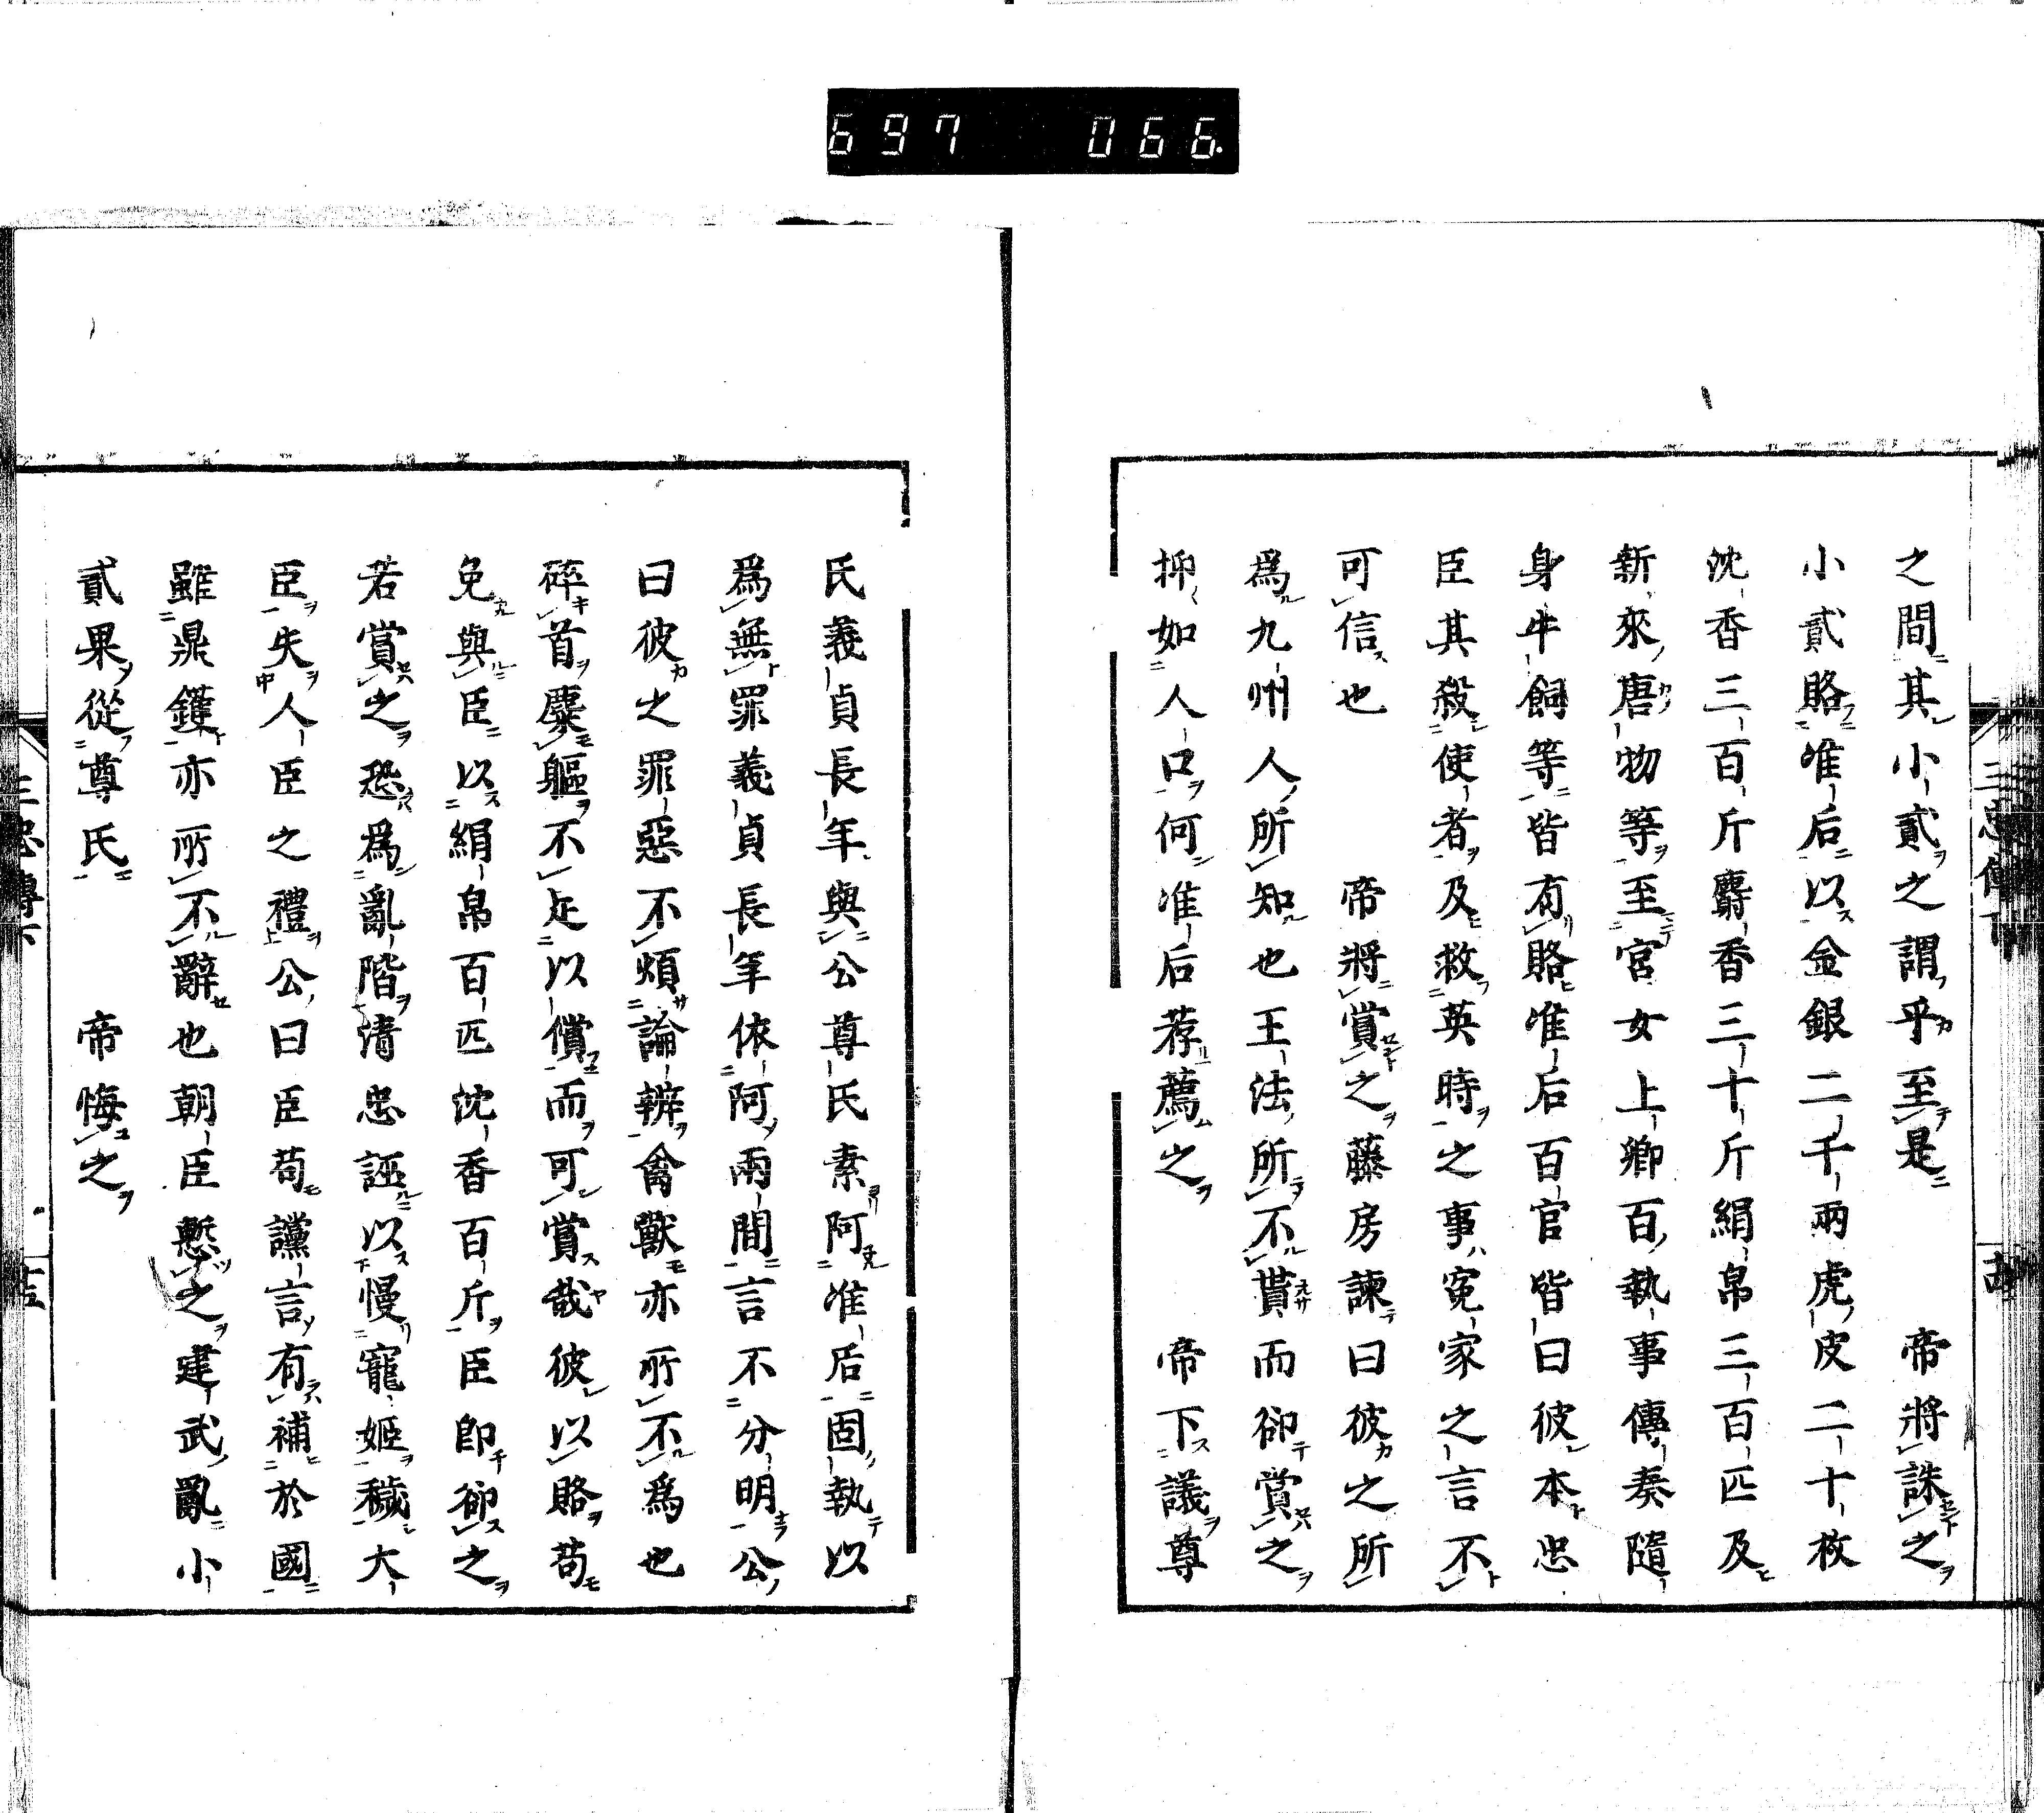 697 066.
之間其小貳之謂乎至是 帝將誅之
小貳賂准后以金銀二千兩虎皮二十枚
沈香三百斤麝香三十斤絹帛三百匹及
新來唐物等至宮女上卿百執事傳奏隨
身牛飼等皆有賂准后百官皆曰彼本忠
臣其殺使者及救英時之事寃家之言不
可信也 帝將賞之藤房諫曰彼之所
爲九州人所知也王法所不貰而卻賞之
抑如人口何准后荐薦之 帝下議尊
氏義貞長年與公尊氏素阿准后固執以
爲無罪義貞長年依阿兩間言不分明公
曰彼之罪惡不煩論辨禽獸亦所不爲也
碎首麋軀不足以償而可賞哉彼以賂苟
免與臣以絹帛百匹沈香百斤臣即卻之
若賞之恐爲亂階清忠誣以慢寵姬穢大
臣失人臣之禮公曰臣苟讜言有補於國
雖鼎鑊亦所不辭也朝臣慙之建武亂小
貳果從尊氏 帝悔之